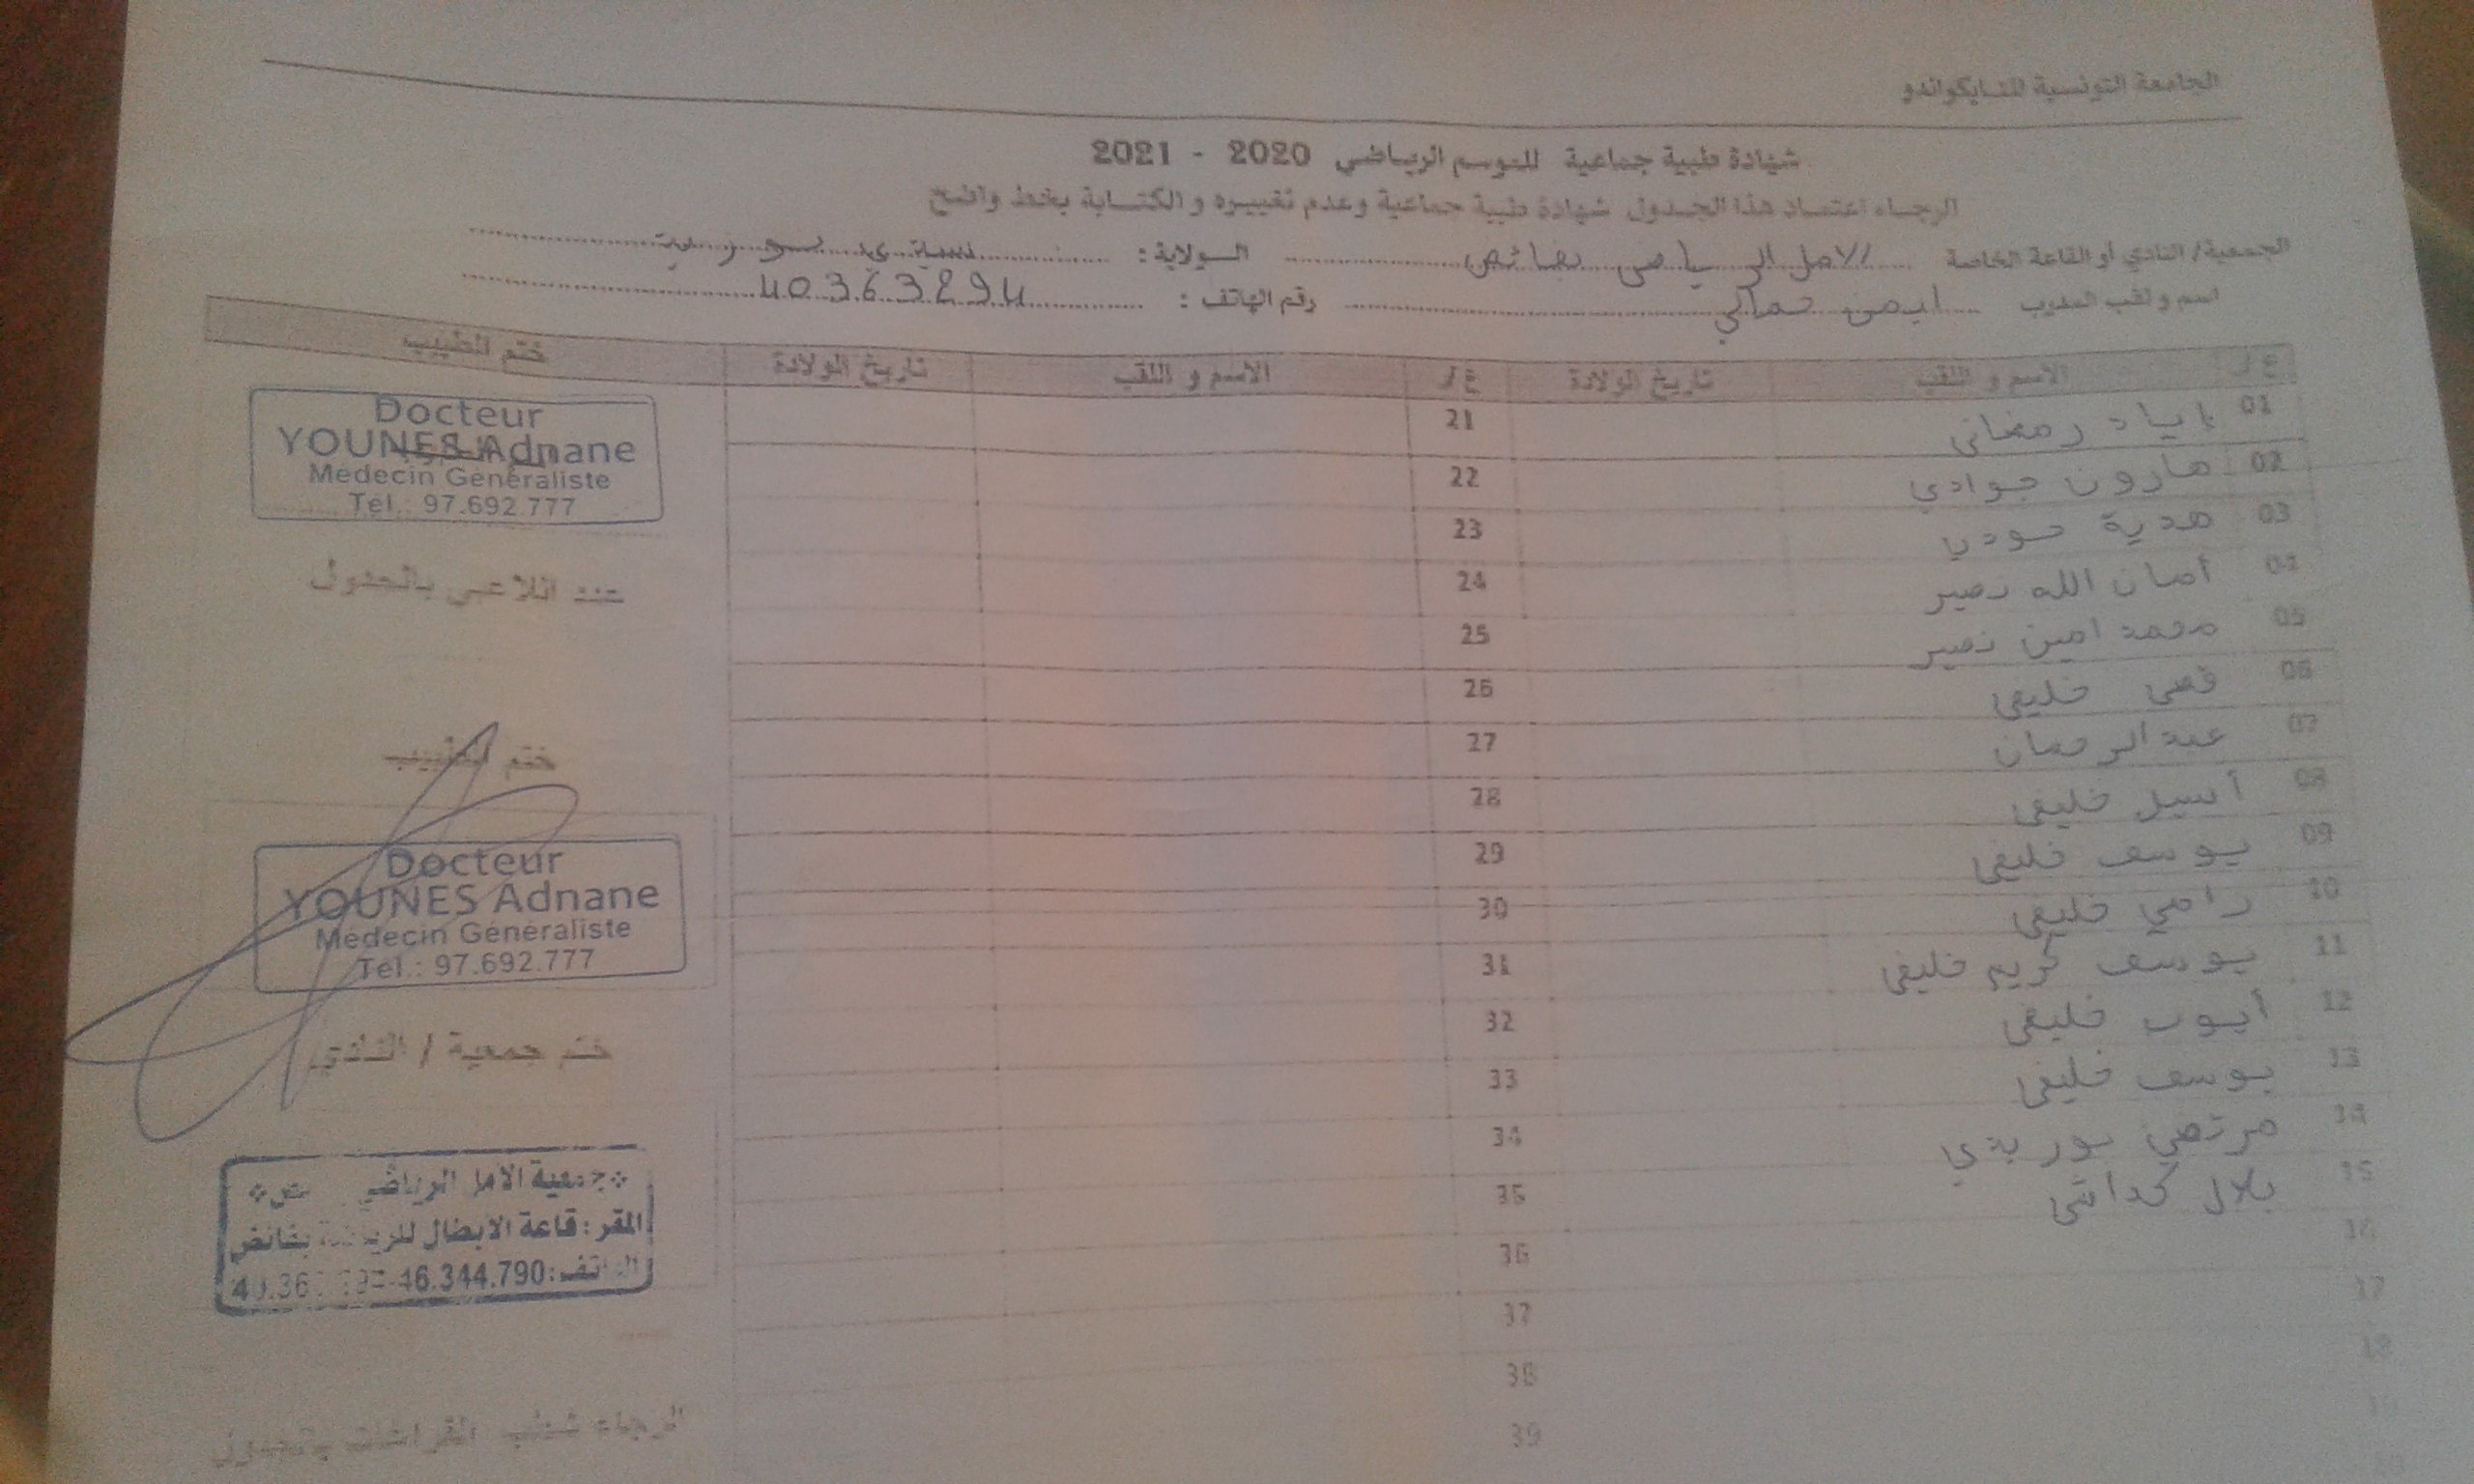 الجامعة التونسية للتايكواندو
شهادة طبية جماعية للموسم الرياضي 2020 - 2021
الرجاء اعتماد هذا الجدول شهادة طبية جماعية وعدم تغييره و الكتابة بخط واضح
الجمعية/ النادي أو القاعة الخاصة الامل الرياضي بفائض الولاية: سيدي بوزيد
اسم و لقب المدرب ايمن رقم الهاتف: 40363294
ع/ الاسم و اللقب تاريخ الولادة ع/ الاسم و اللقب تاريخ الولادة ختم الطبيب
01 اياد رمضاني 21
02 هارون جوادي 22
03 هدية 23
04 أمان الله نصير 24
05 محمد امين نصير 25
06 قصي خليفي 26
07 عبد الرحمان 27
08 أسيل خليفي 28
09 يوسف خليفي 29
10 رامي خليفي 30
11 يوسف كريم خليفي 31
12 أيوب خليفي 32
13 يوسف خليفي 33
14 مرتضى 34
15 بلال 35
16 36
17 37
18 38
39
Docteur
YOUNES Adnane
Médecin Généraliste
Tél.: 97.692.777
عدد اللاعبي بالجدول
ختم الطبيب
Docteur
YOUNES Adnane
Médecin Généraliste
Tél.: 97.692.777
ختم جمعية / النادي
جمعية الامل الرياضي
المقر: قاعة الابطال للرياضة بفائض
الهاتف: 46.344.790
الرجاء شطب الفراغات بالجدول